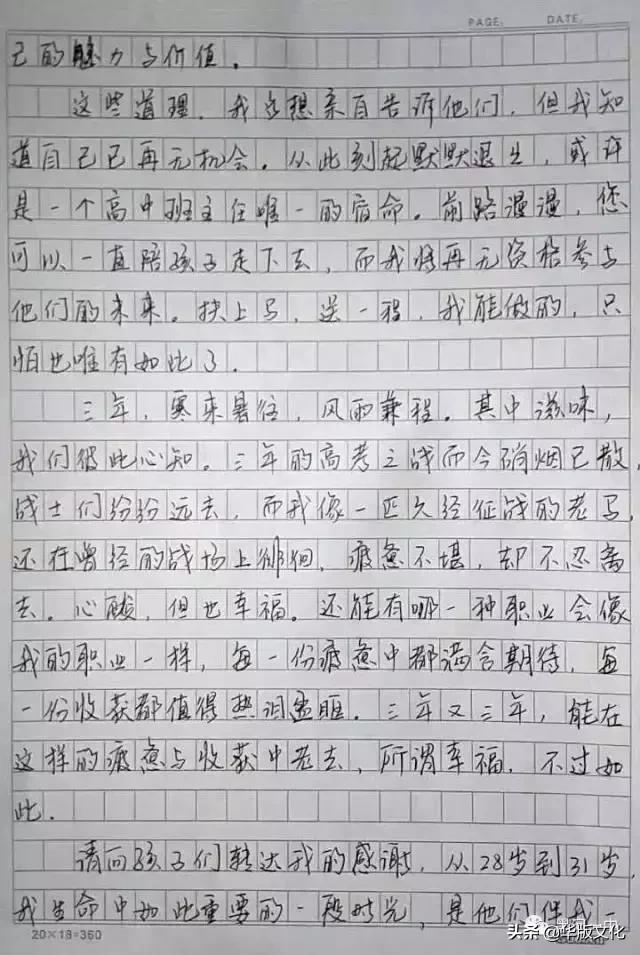 PAGE. DATE.
己的魅力与价值.
这些道理,我也想亲自告诉他们,但我知
道自己已再无机会.从此刻起默默退出,或许
是一个高中班主任唯一的宿命.前路漫漫,您
可以一直陪孩子走下去,而我将再无资格参与
他们的未来.扶上马,送一程,我能做的,只
怕也唯有如此了.
三年,寒来暑往,风雨兼程.其中滋味,
我们彼此心知.三年的高考之战而今硝烟已散,
战士们纷纷远去,而我像一匹久经征战的老马,
还在曾经的战场上徘徊,疲惫不堪,却不忍离
去.心酸,但也幸福.还能有哪一种职业会像
我的职业一样,每一份疲惫中都满含期待,每
一份收获都值得热泪盈眶.三年又三年,能在
这样的疲惫与收获中老去,所谓幸福,不过如
此.
请向孩子们转达我的感谢,从28岁到31岁,
我生命中如此重要的一段时光,是他们伴我一
20×18=360
头条@华版文化